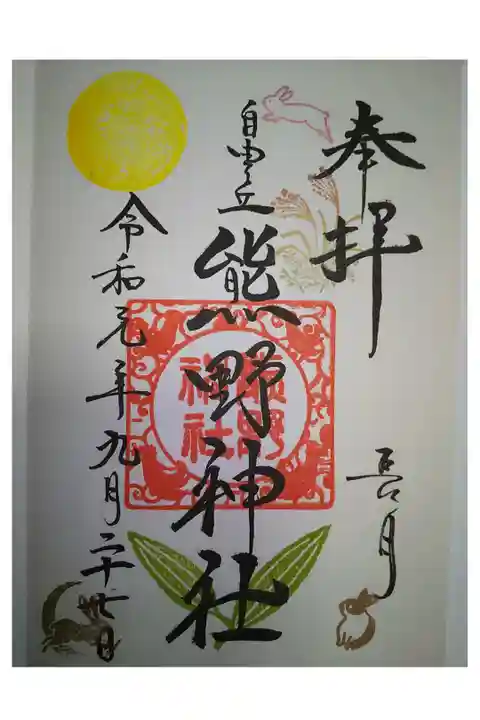 奉拝
長月
自由ヶ丘
熊野神社
熊野
神社
令和元年九月二十七日